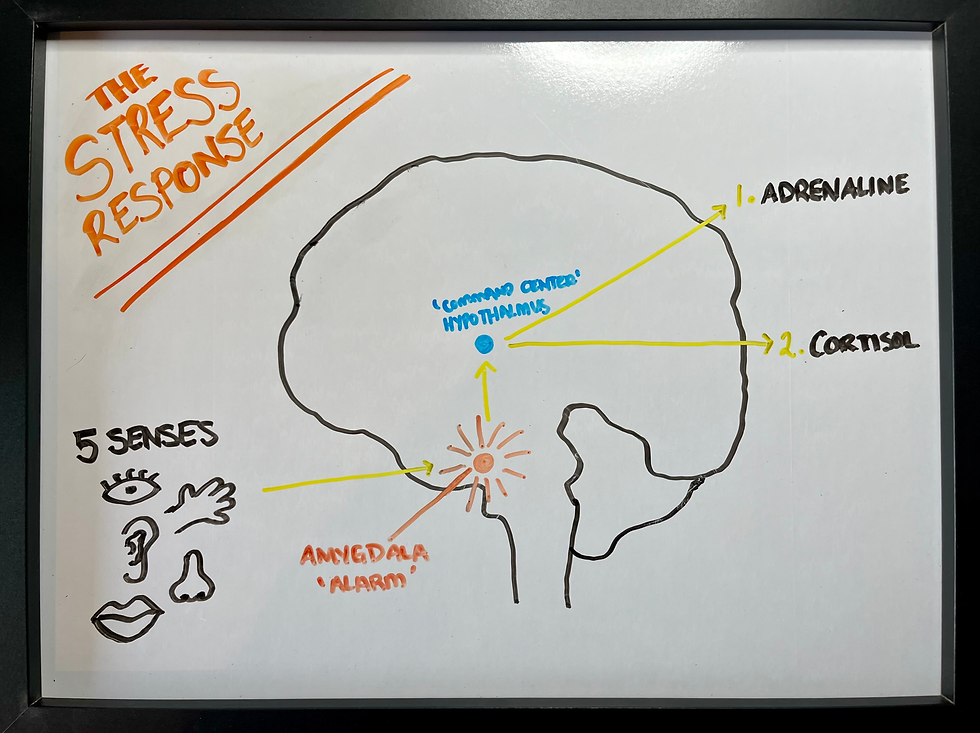 THE
STRESS
RESPONSE
'COMMAND CENTER'
HYPOTHALMUS
1. ADRENALINE
2. CORTISOL
5 SENSES
AMYGDALA
'ALARM'